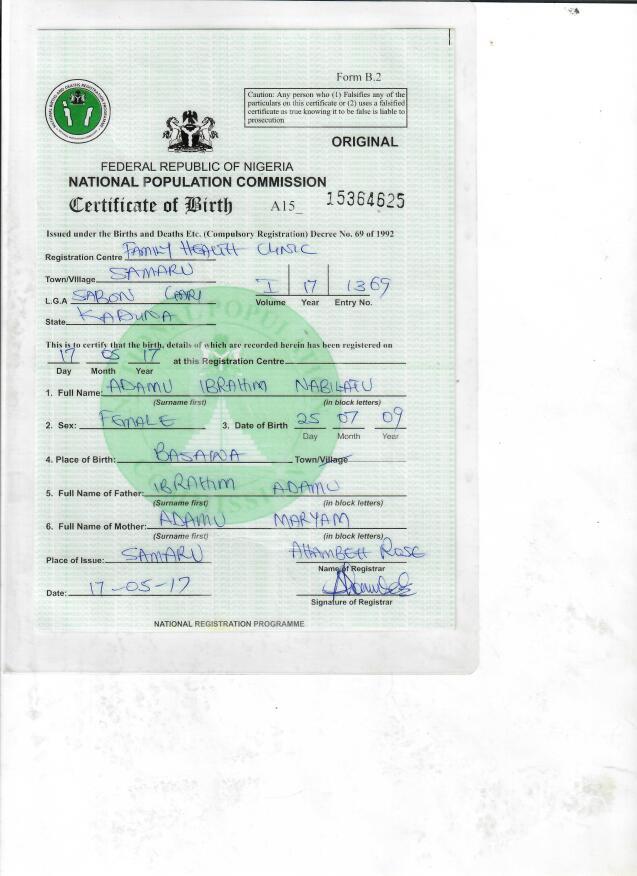 Form B.2
Caution: Any person who (1) Falsifies any of the
particulars on this certificate or (2) uses a falsified
certificate as true knowing it to be false is liable to
prosecution
ORIGINAL
FEDERAL REPUBLIC OF NIGERIA
NATIONAL POPULATION COMMISSION
Certificate of Birth A15_ 15364625
Issued under the Births and Deaths Etc. (Compulsory Registration) Decree No. 69 of 1992
Registration Centre FAMILY HEALTH CLINIC
Town/Village SAMARU
L.G.A SABON GARI I 17 1369
Volume Year Entry No.
State KADUNA
This is to certify that the birth, details of which are recorded herein has been registered on
17 05 17 at this Registration Centre
Day Month Year
1. Full Name: ADAMU IBRAHIM
(Surname first) (in block letters)
2. Sex: FEMALE 3. Date of Birth 25 07 09
Day Month Year
4. Place of Birth: BASAWA Town/Village
5. Full Name of Father: IBRAHIM ADAMU
(Surname first) (in block letters)
6. Full Name of Mother: ADAMU MARYAM
(Surname first) (in block letters)
Place of Issue: SAMARU ROSE
Name of Registrar
Date: 17-05-17
Signature of Registrar
NATIONAL REGISTRATION PROGRAMME